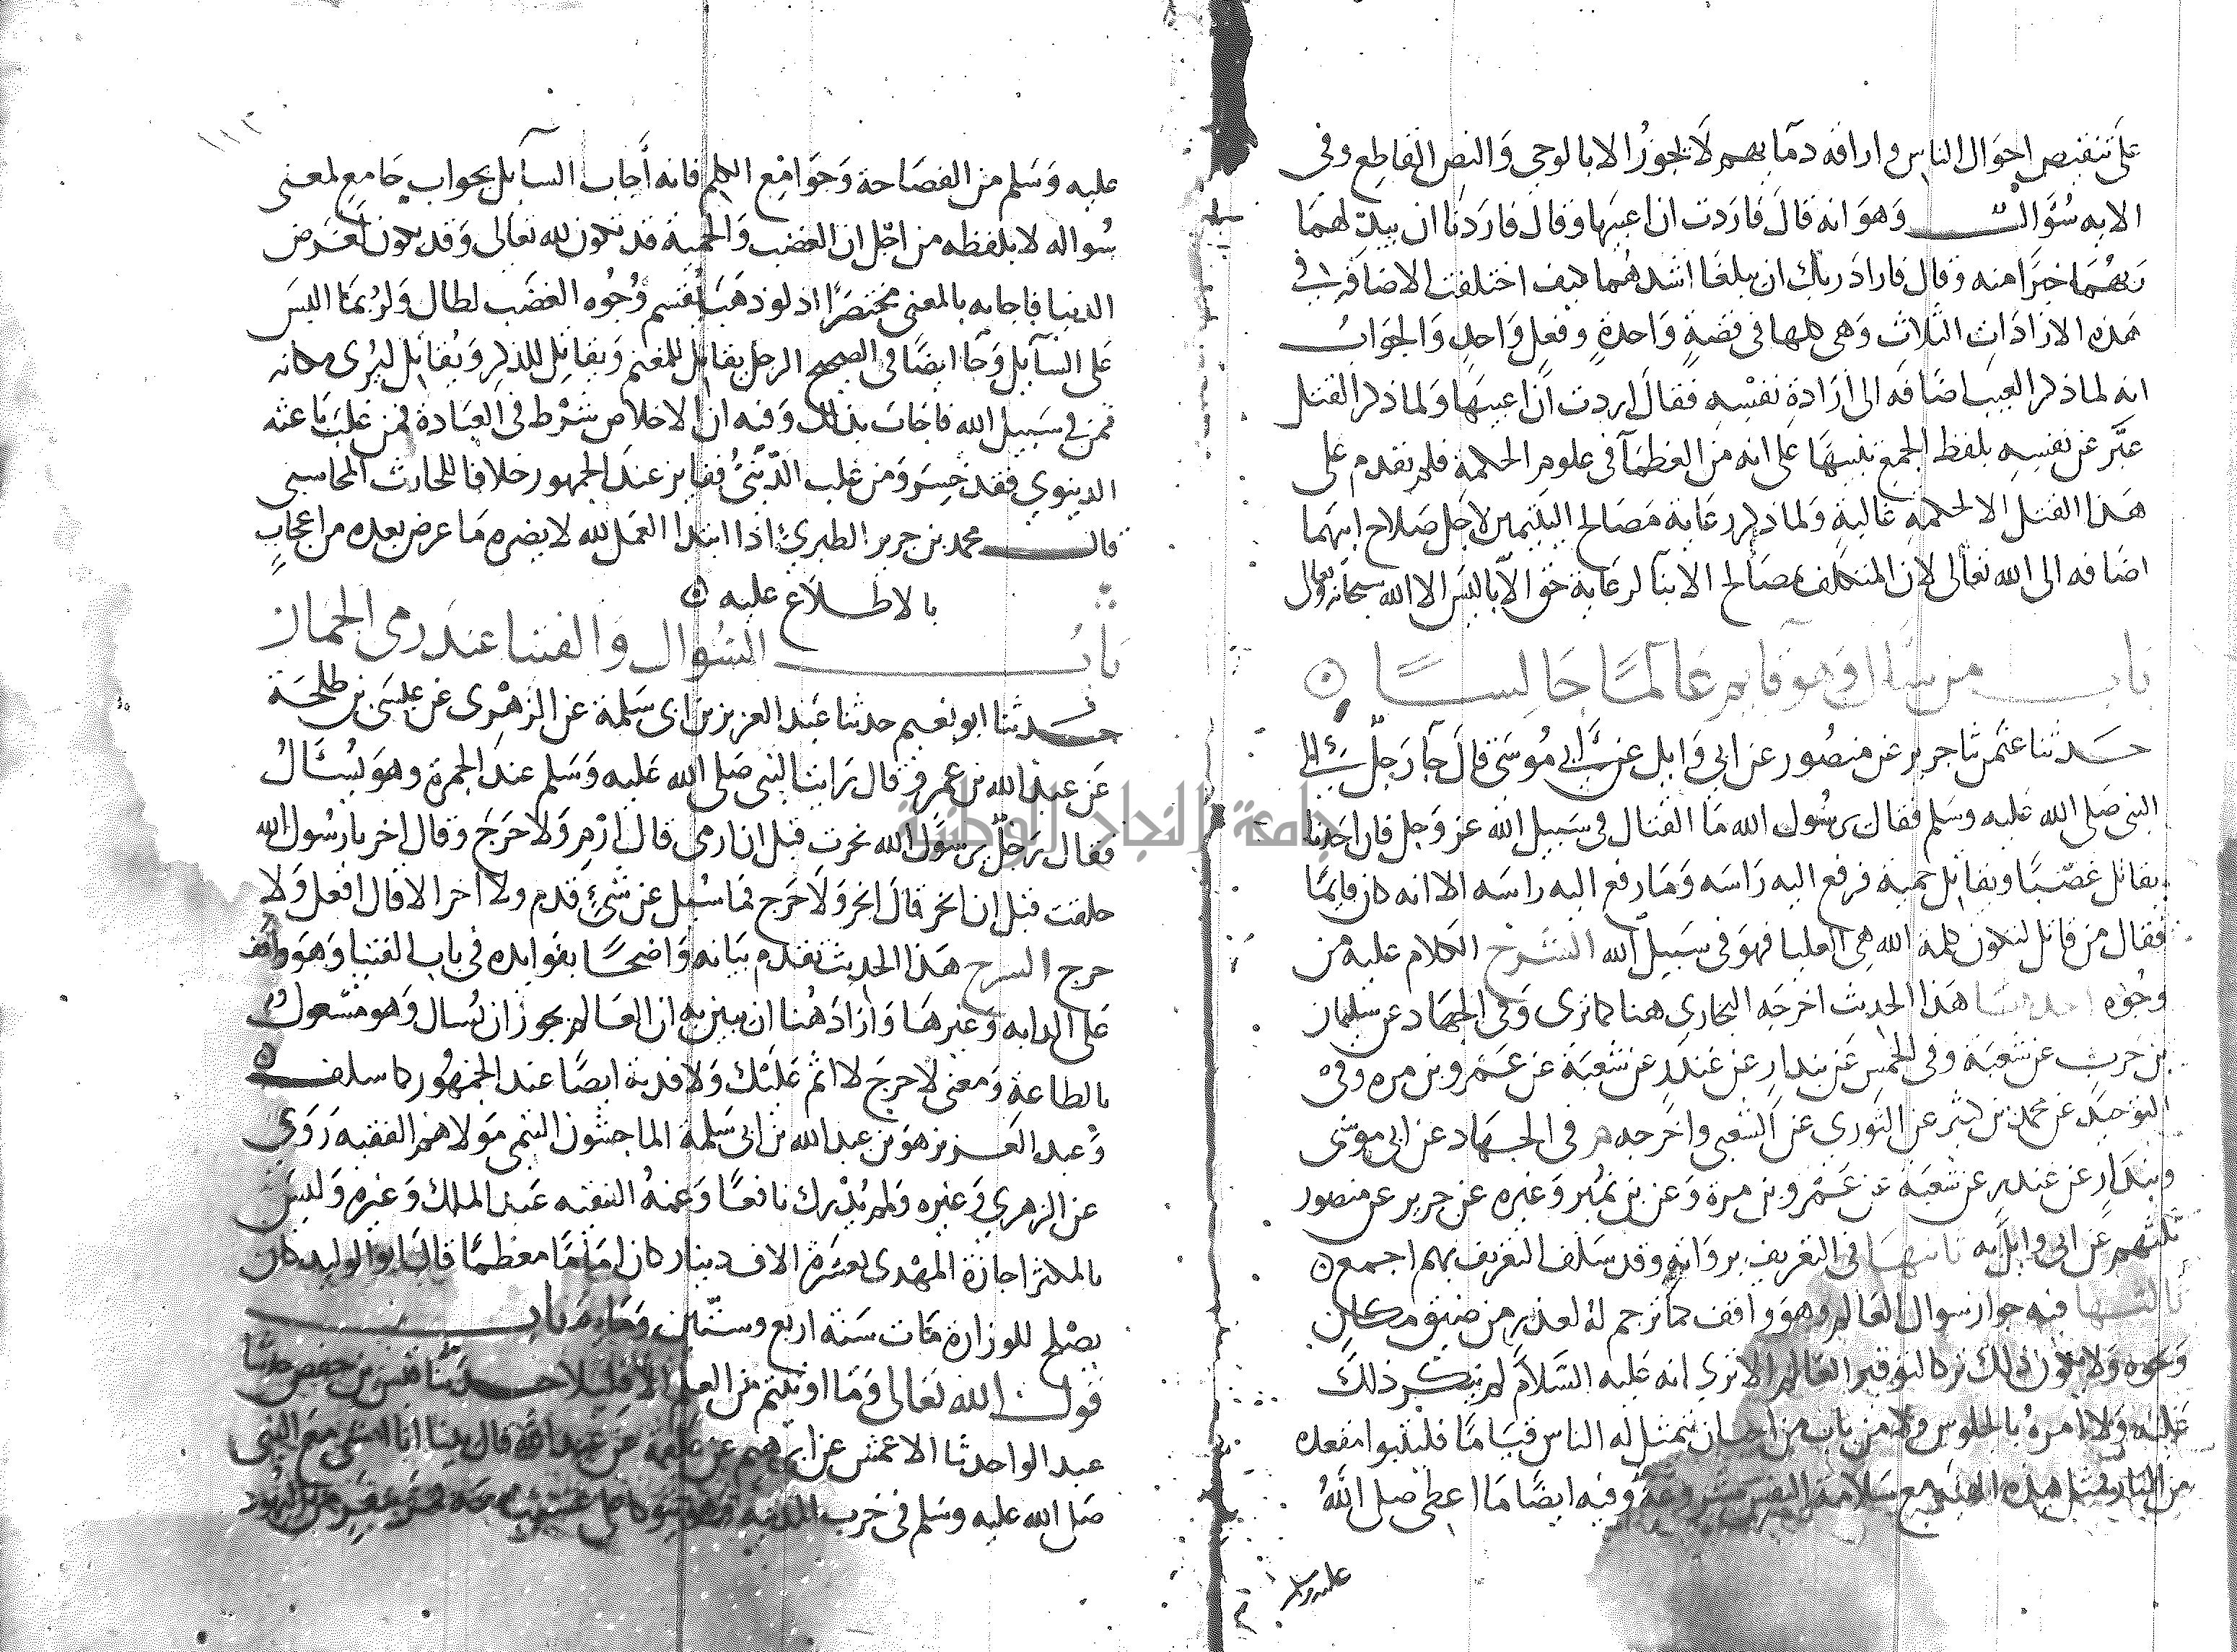 على تنقيص احوال الناس واراقه دمآيهم لا يجوز الا بالوحي والنص القاطع وفي
الايه سؤال وهو انه قال فاردت ان اعيبها وقال فاردنا ان يبدلهما
ربهما خيرا منه وقال فاراد ربك ان يبلغا اشدهما كيف اختلفت الاضافه في
هذه الارادات الثلاث وهي كلها في قصة واحدة وفعل واحد والجواب
انه لما ذكر العيب اضافه الى ارادة نفسه فقال اردت ان اعيبها ولما ذكر القتل
عبر عن نفسه بلفظ الجمع تنبيها على انه من العظمآ في علوم الحكمة فلم يقدم على
هذا القتل الا لحكمة عالية ولما ذكر رعاية مصالح اليتيمين لاجل صلاح ابيهما
اضافه الى الله تعالى لان المتكلف بمصالح الابنآ لرعاية حق الابآ ليس الا الله سبحانه وتعالى
باب من سال وهو قايم عالما جالسا
حدثنا عثمن ثنا جرير عن منصور عن ابي وايل عن ابي موسى قال جآ رجل الى
النبي صلى الله عليه وسلم فقال يرسول الله ما القتال في سبيل الله عز وجل فان احدنا
يقاتل غضبا ويقاتل حمية فرفع اليه راسه وما رفع اليه راسه الا انه كان قايما
فقال من قاتل لتكون كلمة الله هي العليا فهو في سبيل الله الشرح الكلام عليه من
وجوه احدها هذا الحديث اخرجه البخاري هنا كما ترى وفي الجهاد عن سليمان
بن حرب عن شعبة وفي الخمس عن بندار عن غندر عن شعبة عن عمرو بن مره وفي
التوحيد عن محمد بن كثير عن الثوري عن الشعبي واخرجه م في الجهاد عن ابي موسى
وبندار عن غندر عن شعبة عن عمرو بن مرة وعن بن نمير وغيره عن جرير عن منصور
ثلثتهم عن ابي وايل به ثانيها في التعريف برواته وقد سلف التعريف بهم اجمع
ثالثها فيه جواز سوال العالم وهو واقف كما ترجم له لعذر من ضيق مكان
ونحوه ولا يكون ذلك تركا لتوقير العالم الا ترى انه عليه السلام لم ينكر ذلك
عليه ولا امره بالجلوس ولا من باب من احب ان يتمثل له الناس قياما فليتبوا مقعده
من النار فمثل هذه الهيئة مع سلامة النفس مشروعة وفيه ايضا ما اعطى صلى الله
عليه وسلم
١١٢
عليه وسلم من الفصاحة وجوامع الكلم فانه أجاب السآيل بجواب جامع لمعنى
سواله لا بلفظه من اجل ان الغضب والحمية قد تكون لله تعالى وقد تكون لغرض
الدنيا فاجابه بالمعنى مختصرا اذ لو ذهب يقسم وجوه الغضب لطال ولربما البس
على السآيل وجآ ايضا في الصحيح الرجل يقاتل للمغنم ويقاتل للذكر ويقاتل ليرى مكانه
فمن في سبيل الله فاجاب بذلك وفيه ان الاخلاص شرط في العبادة فمن غلب باعثه
الدنيوي فقد خسر ومن غلب الديني ففايز عند الجمهور خلافا للحارث المحاسبي
قال محمد بن جرير الطبري اذا ابتدا العمل لله لا يضره ما عرض بعده من اعجاب
بالاطلاع عليه
باب السوال والفتيا عند رمي الجمار
حدثنا ابو نعيم حدثنا عبد العزيز بن ابي سلمة عن الزهري عن عيسى بن طلحة
عن عبد الله بن عمرو قال رايت النبي صلى الله عليه وسلم عند الجمرة وهو يسال
فقال رجل يرسول الله نحرت قبل ان ارمي قال ارم ولا حرج وقال اخر يا رسول الله
حلقت قبل ان انحر قال انحر ولا حرج فما سيل عن شي قدم ولا اخر الا قال افعل ولا
حرج الشرح هذا الحديث تقدم بيانه واضحا بفوايده في باب الفتيا وهو واقف
على الدابه وغيرها واراد هنا ان يبين به ان العالم يجوز ان يسال وهو مشغول
بالطاعة ومعنى لا حرج لا اثم عليك ولا فدية ايضا عند الجمهور كما سلف
وعبد العزيز هو بن عبد الله بن ابي سلمة الماجشون التيمي مولاهم الفقيه روى
عن الزهري وغيره ولم يدرك نافعا وعنه ابنه عبد الملك وغيره وليس
بالمكثر اجازه المهدي بعشرة الاف دينار كان اماما معظما قال ابو الوليد كان
يصلح للوزارة مات سنة اربع وستين ومايه باب
قول الله تعالى وما اوتيتم من العلم الا قليلا حدثنا قيس بن حفص حدثنا
عبد الواحد ثنا الاعمش عن ابرهيم عن علقمة عن عبد الله قال بينا انا امشي مع النبي
صلى الله عليه وسلم في خرب المدينه وهو يتوكا على عسيب معه فمر بنفر من اليهود
جامعة النجاح الوطنية